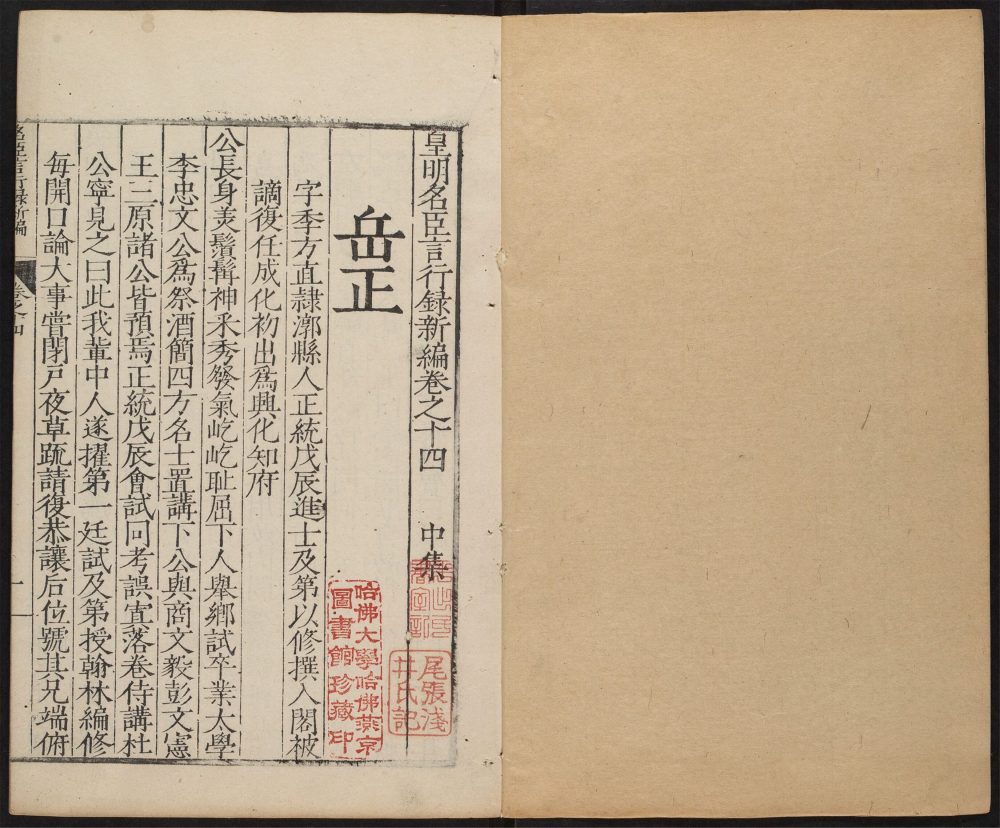 皇明名臣言行録新編卷之十四　中集
岳正
字季方直隷漷縣人正統戊辰進士及第以修撰入閣被
謫復任成化初出爲興化知府
公長身美鬚髯神采秀發氣屹屹耻屈下人舉鄉試卒業太學
李忠文公爲祭酒簡四方名士置講下公與商文毅彭文憲
王三原諸公皆預焉正統戊辰會試同考誤寘落卷侍講杜
公寧見之曰此我輩中人遂擢第一廷試及第授翰林編修
每開口論大事嘗閉戸夜草䟽請復恭讓后位號其兄端俯
名臣言行録新編
卷之十四
一
哈佛大學哈佛燕京
圖書館珍藏印
尾張淺
井氏記